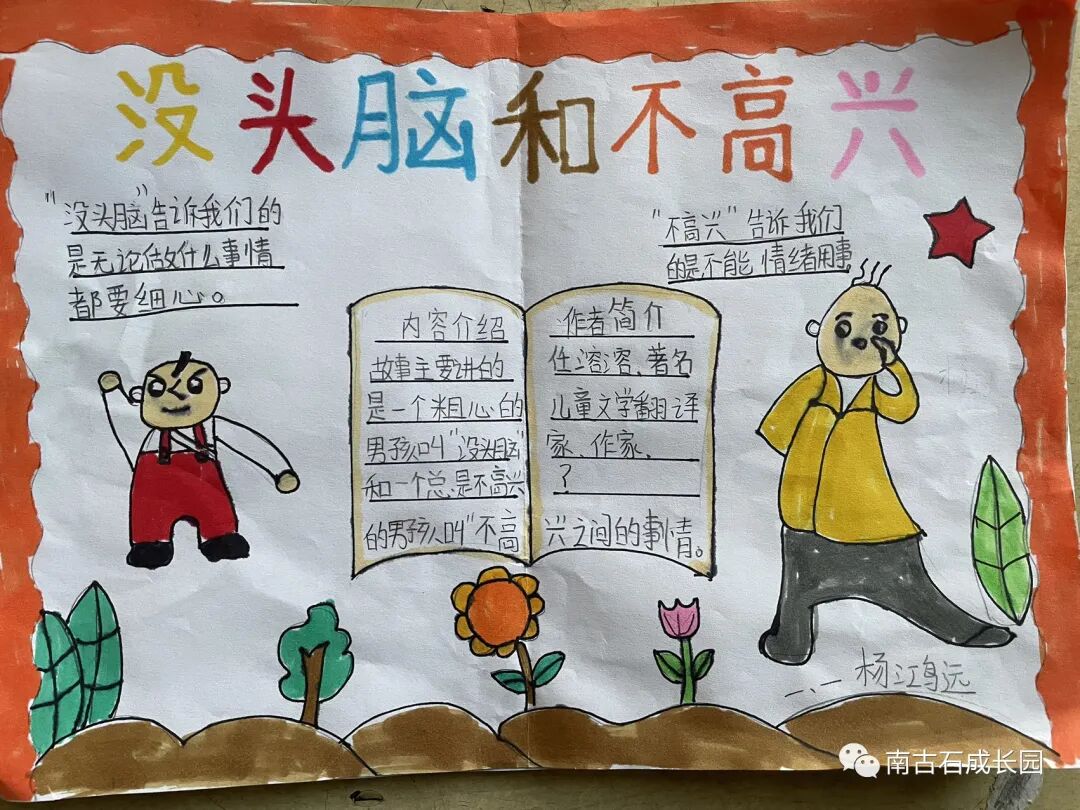 没头脑和不高兴
"没头脑"告诉我们的
是无论做什么事情
都要细心。
"不高兴"告诉我们
的是不能情绪用事
内容介绍
故事主要讲的
是一个粗心的
男孩叫"没头脑"
和一个总是不高兴
的男孩叫"不高
作者简介
任溶溶、著名
儿童文学翻译
家、作家、
?
兴之间的事情。
一、一 杨江鸟远
南古石成长园